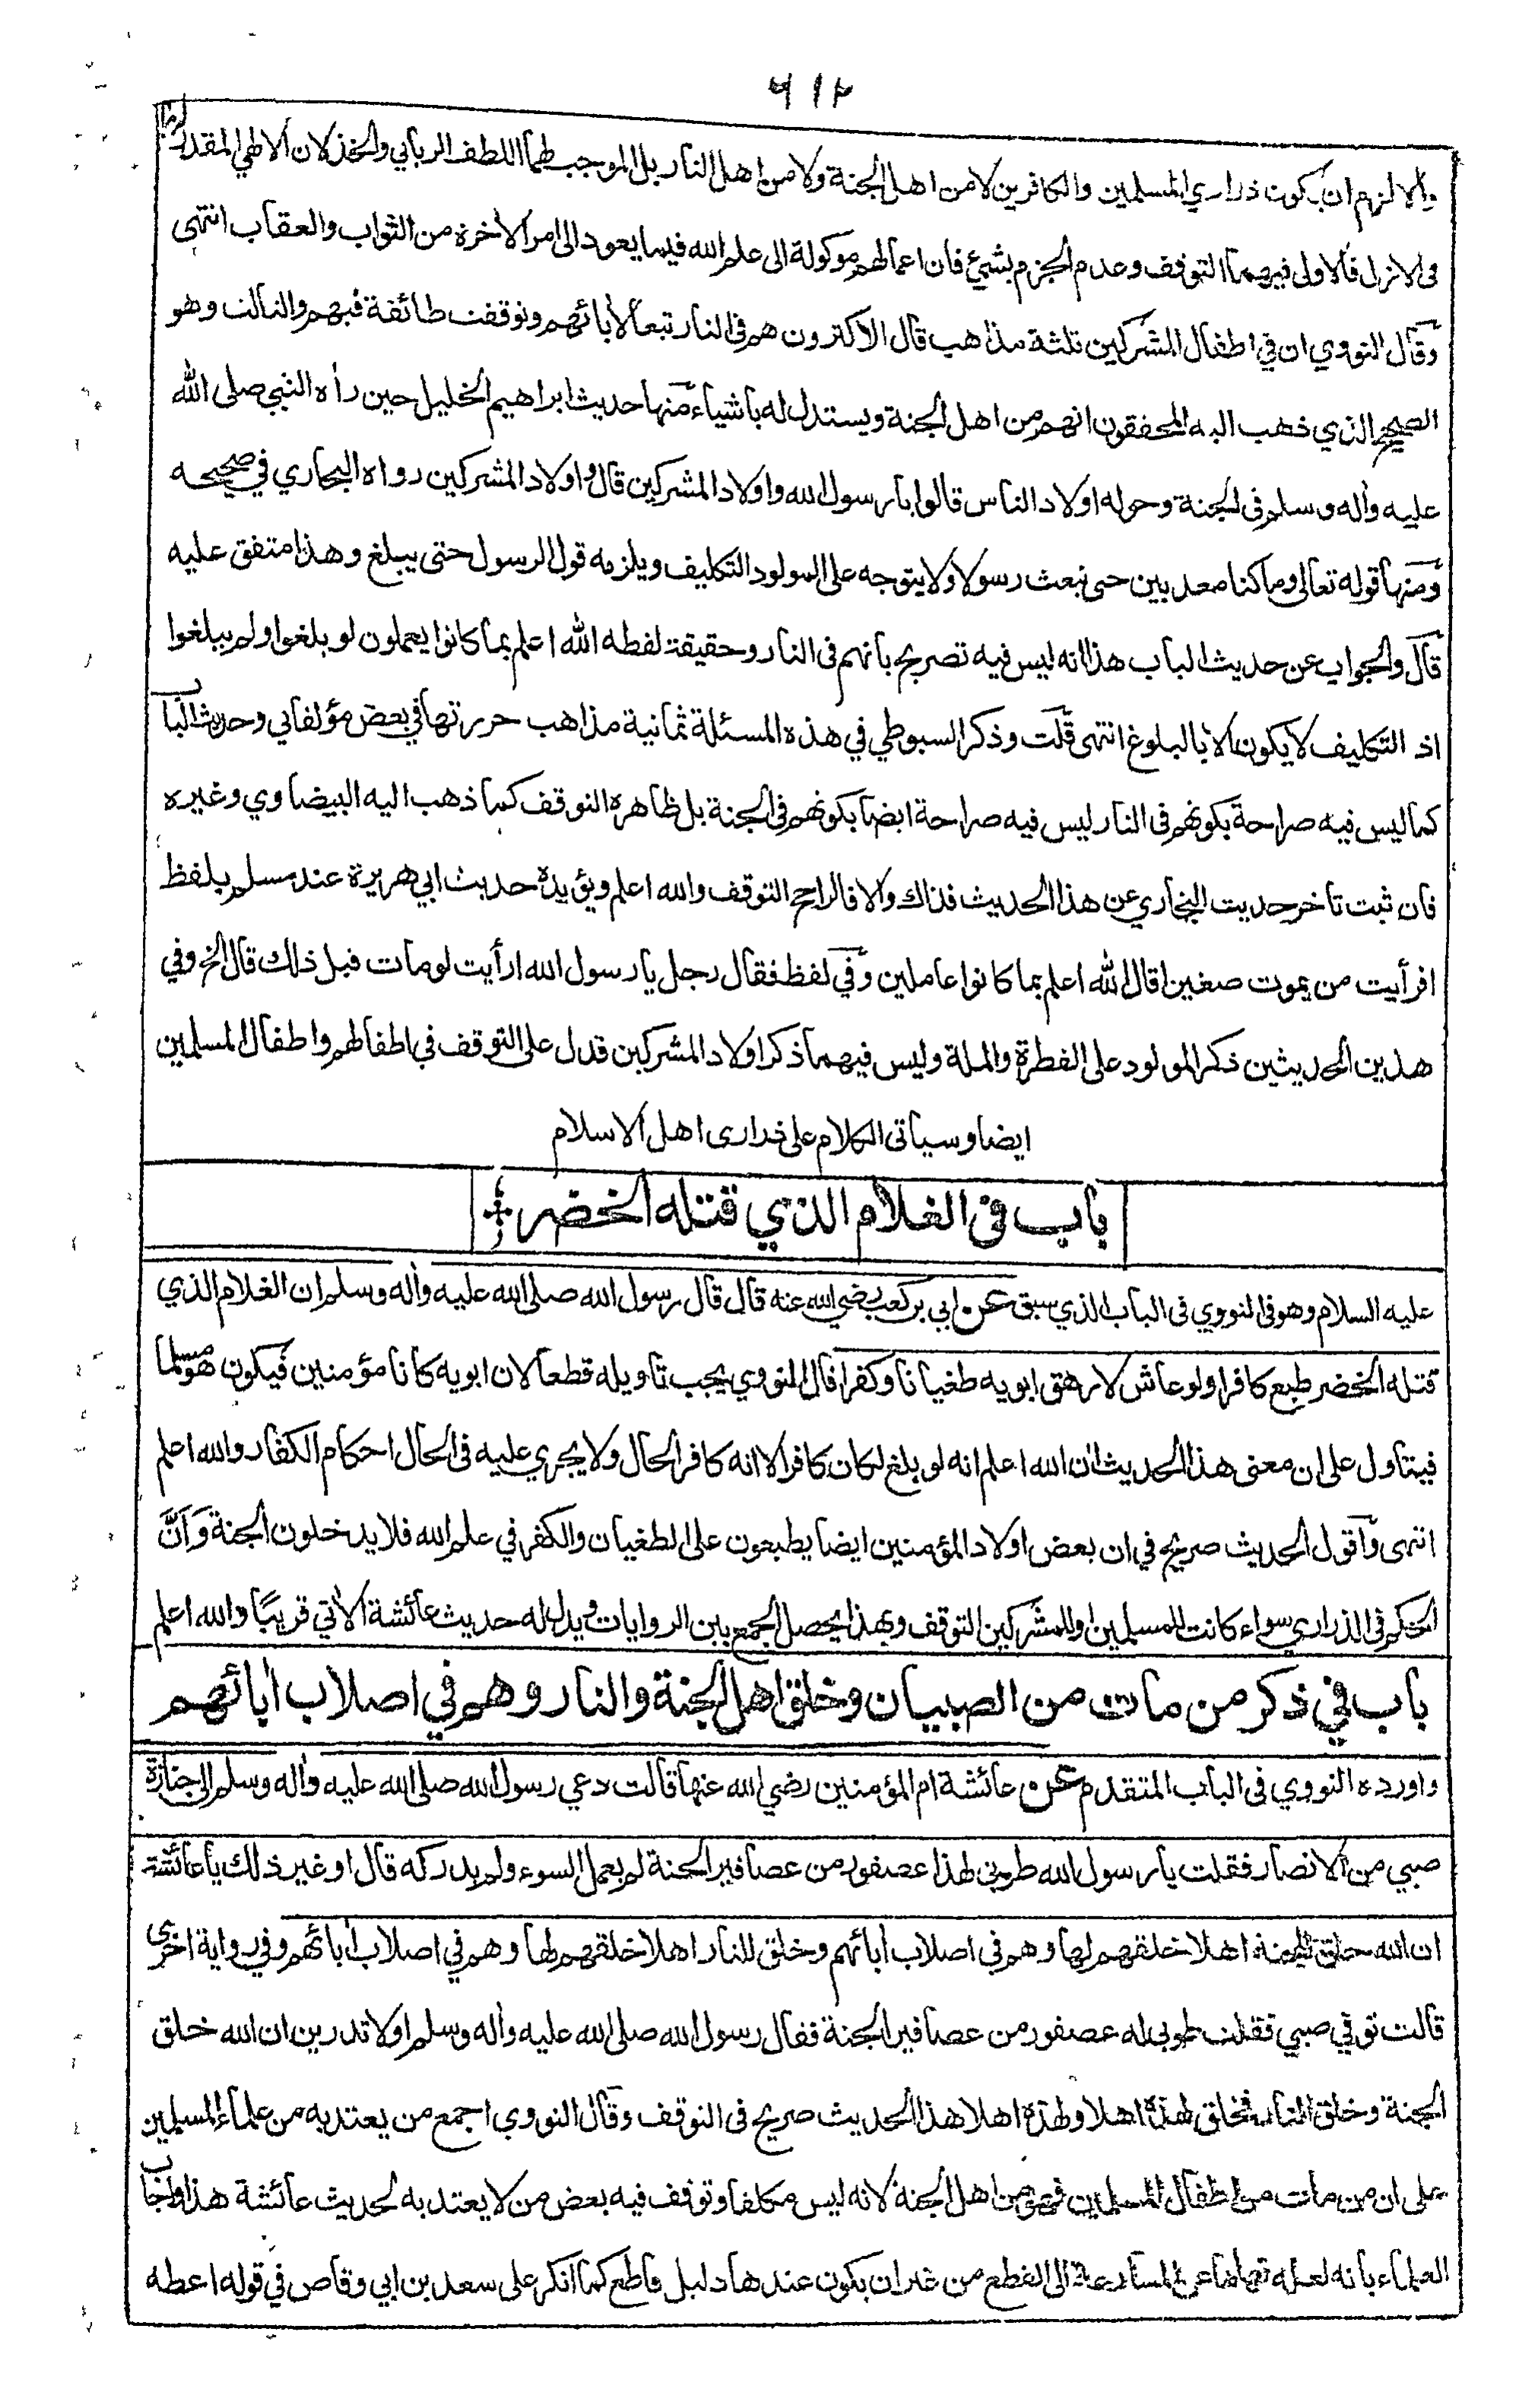 ٦١٢
والا لزم ان يكون ذراري المسلمين والكافرين لا من اهل الجنة ولا من اهل النار بل الموجب لهما اللطف الرباني والخذلان الالهي المقدر لهما
فى الازل فالاولى فيهما التوقف وعدم الجزم بشيئ فان اعمالهم موكولة الى علم الله فيما يعود الى امر الاخرة من الثواب والعقاب انتهى
وقال النووي ان في اطفال المشركين ثلثة مذاهب قال الاكثرون هم فى النار تبعا لأبائهم وتوقفت طائفة فيهم والثالث وهو
الصحيح الذي ذهب اليه المحققون انهم من اهل الجنة ويستدل له باشياء منها حديث ابراهيم الخليل حين رأه النبي صلى الله
عليه وأله وسلم فى الجنة وحوله اولاد الناس قالوا يا رسول الله واولاد المشركين قال واولاد المشركين رواه البخاري في صحيحه
ومنها قوله تعالى وما كنا معذبين حتى نبعث رسولا ولا يتوجه على المولود التكليف ويلزمه قول الرسول حتى يبلغ وهذا متفق عليه
قال والجواب عن حديث الباب هذا انه ليس فيه تصريح بانهم فى النار وحقيقة لفظه الله اعلم بما كانوا يعملون لو بلغوا ولم يبلغوا
اذ التكليف لا يكون الا بالبلوغ انتهى قلت وذكر السيوطي في هذه المسئلة ثمانية مذاهب حررتها في بعض مؤلفاتي وحديث الباب
كما ليس فيه صراحة بكونهم فى النار ليس فيه صراحة ايضا بكونهم فى الجنة بل ظاهره التوقف كما ذهب اليه البيضاوي وغيره
فان ثبت تاخر حديث البخاري عن هذا الحديث فذاك والا فالراجح التوقف والله اعلم ويؤيده حديث ابي هريرة عند مسلم بلفظ
افرأيت من يموت صغيرا قال الله اعلم بما كانوا عاملين وفي لفظ فقال رجل يا رسول الله ارأيت لو مات قبل ذلك قال الخ وفي
هذين الحديثين ذكر المولود على الفطرة والملة وليس فيهما ذكر اولاد المشركين فدل على التوقف في اطفالهم واطفال المسلمين
ايضا وسياتى الكلام على ذرارى اهل الاسلام
باب فى الغلام الذي قتله الخضر
عليه السلام وهو فى النووي فى الباب الذي سبق عن ابي بن كعب رضي الله عنه قال قال رسول الله صلى الله عليه وأله وسلم ان الغلام الذي
قتله الخضر طبع كافرا ولو عاش لارهق ابويه طغيانا وكفرا قال النووي يجب تاويله قطعا لان ابويه كانا مؤمنين فيكون هو مسلما
فيتاول على ان معنى هذا الحديث ان الله اعلم انه لو بلغ لكان كافرا لا انه كافر الحال ولا يجري عليه فى الحال احكام الكفار والله اعلم
انتهى واقول الحديث صريح في ان بعض اولاد المؤمنين ايضا يطبعون على الطغيان والكفر في علم الله فلا يدخلون الجنة وَاَنَّ
الحكم فى الذراري سواء كانت للمسلمين او للمشركين التوقف وبهذا يحصل الجمع بين الروايات ويدل له حديث عائشة الأتي قريبًا والله اعلم
باب في ذكر من مات من الصبيان وخلق اهل الجنة والنار وهم في اصلاب أبائهم
واورده النووي فى الباب المتقدم عن عائشة ام المؤمنين رضي الله عنها قالت دعي رسول الله صلى الله عليه وأله وسلم الى جنازة
صبي من الانصار فقلت يا رسول الله طوبى لهذا عصفور من عصافير الجنة لم يعمل السوء ولم يدركه قال او غير ذلك يا عائشة
ان الله خلق للجنة اهلا خلقهم لها وهم في اصلاب أبائهم وخلق للنار اهلا خلقهم لها وهم في اصلاب أبائهم وفي رواية اخرى
قالت توفي صبي فقلت طوبى له عصفور من عصافير الجنة فقال رسول الله صلى الله عليه وأله وسلم اولا تدرين ان الله خلق
الجنة وخلق النار فخلق لهذه اهلا ولهذه اهلا هذا الحديث صريح فى التوقف وقال النووي اجمع من يعتد به من علماء المسلمين
على ان من مات من اطفال المسلمين فهو من اهل الجنة لانه ليس مكلفا وتوقف فيه بعض من لا يعتد به لحديث عائشة هذا واجاب
العلماء بانه لعله نهاها عن المسارعة الى القطع من غير ان يكون عندها دليل قاطع كما انكر على سعد بن ابي وقاص في قوله اعطه